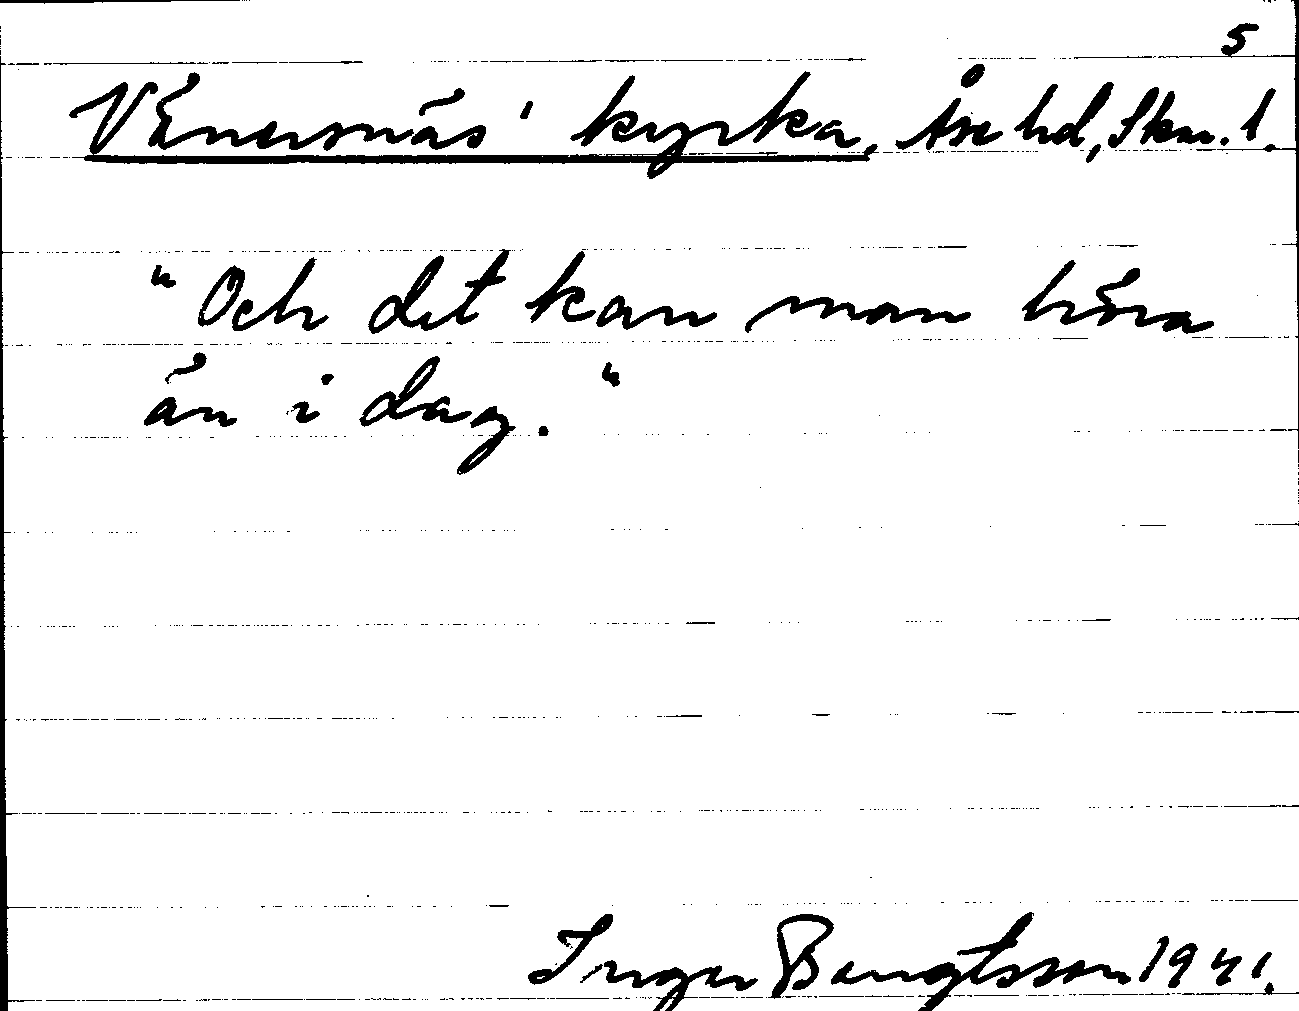 5
Vänersnäs' kyrka, Åse hd, Skar. l.
"Och det kan man höra
än i dag."
Inger Bengtsson 1941.